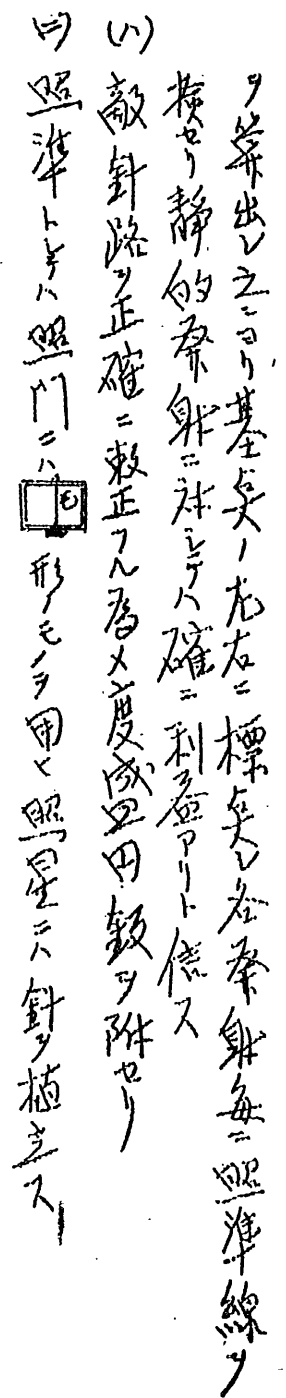 ヲ算出シ之ニヨリ基点ノ左右ニ標点シ各発射毎ニ照準線ヲ
検セリ静的発射ニ対シテハ確ニ利益アリト信ス
(ハ) 敵針路ヲ正確ニ教正スル為メ度盛円鈑ヲ附セリ
(ニ) 照準トシテハ照門ニハ 形ノモノヲ用ヒ照星ニハ針ヲ植立ス